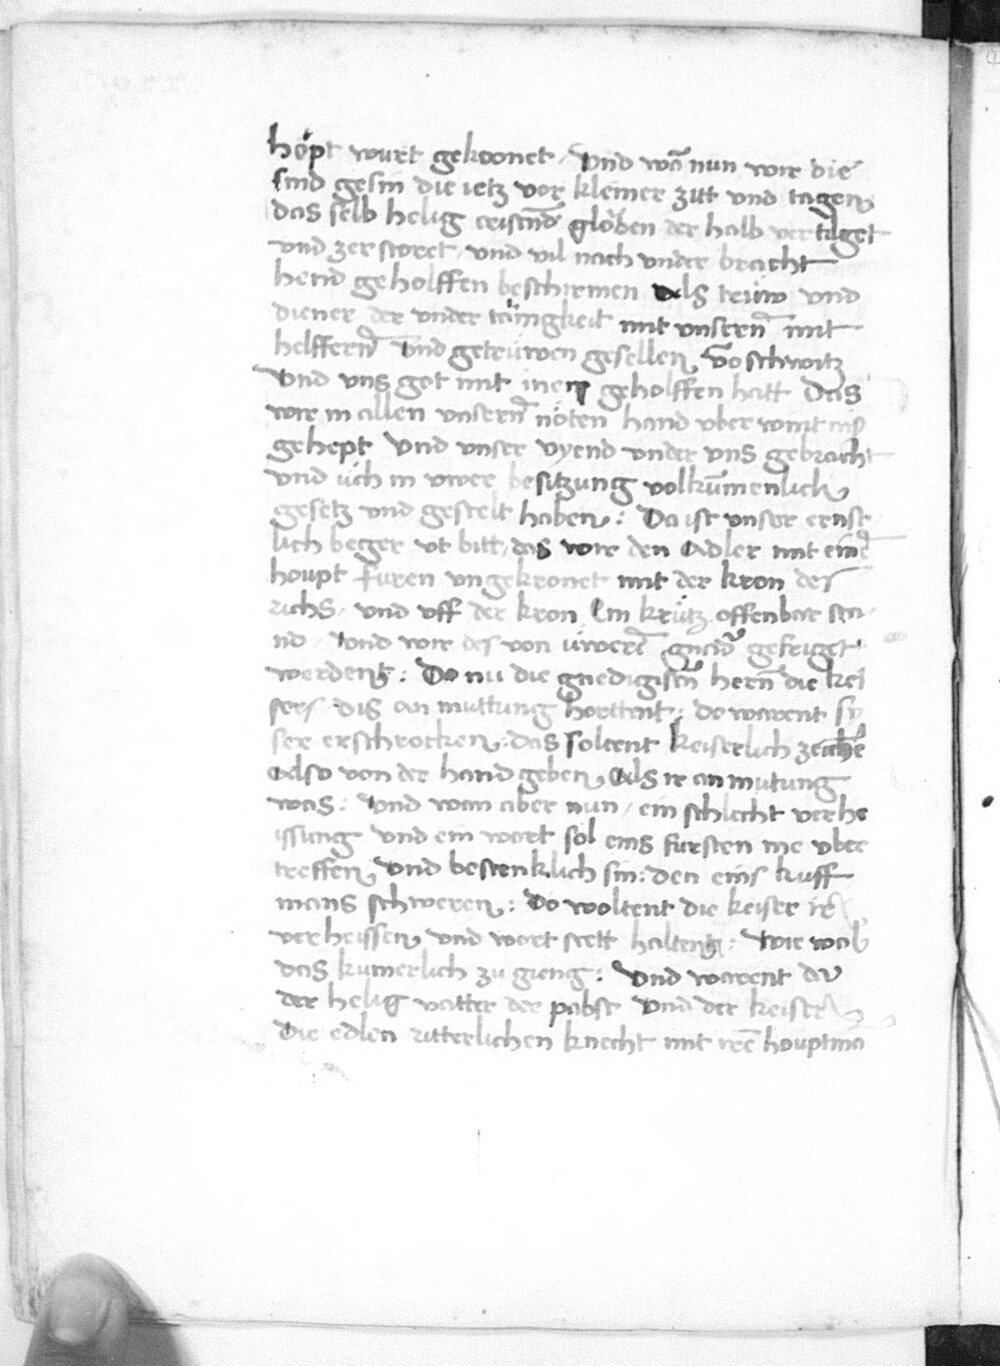 höpt wurt gekroonet / Und wā nun wir die
sind gesin die ietz vor kleiner zitt und tagen
das selb helig cristānd glöben der halb vertilget
und zerstöret / und vil nach under bracht
hend geholffen beschirmen als trüw und
diener der under tänigkeit mit unsern mit
helffern Und getrüwen gesellen vō schwitz
Und uns got mit inen geholffen hatt Das
wir in allen unsern nöten hand uber wint nis
gehept Und unser vyend under uns gebracht
und üch in uwer besitzung volkūmenlich
gesetz und gestelt haben : Da ist unser ernst
lich beger ut bitt / das wir den Adler mit eim
houpt furen ungekronet mit der kron des
richs / und uff der kron Ein krütz offenbar sta
nd / Und wir des von üwere gnad gefriget
werdent : Do nu die gnedigisten hern die kei
sers dis an muttung horttent : do warent sy
ser erschrocken : das soltent keiserlich zeiche
Also von der hand geben Als ir an mutung
was : Und wan aber nun / ein schlecht verhe
issung Und ein wort sol eins fursten me uber
treffen Und bestenklich sin : den eins kuff
mans schweren : Do woltent die keiser ir
verheissen und wort stett halten : Wie wol
das kumerlich zu gieng : Und warent da
der helig vatter der pabst Und der keiser
Die edlen ritterlichen knecht mit irē houptmā